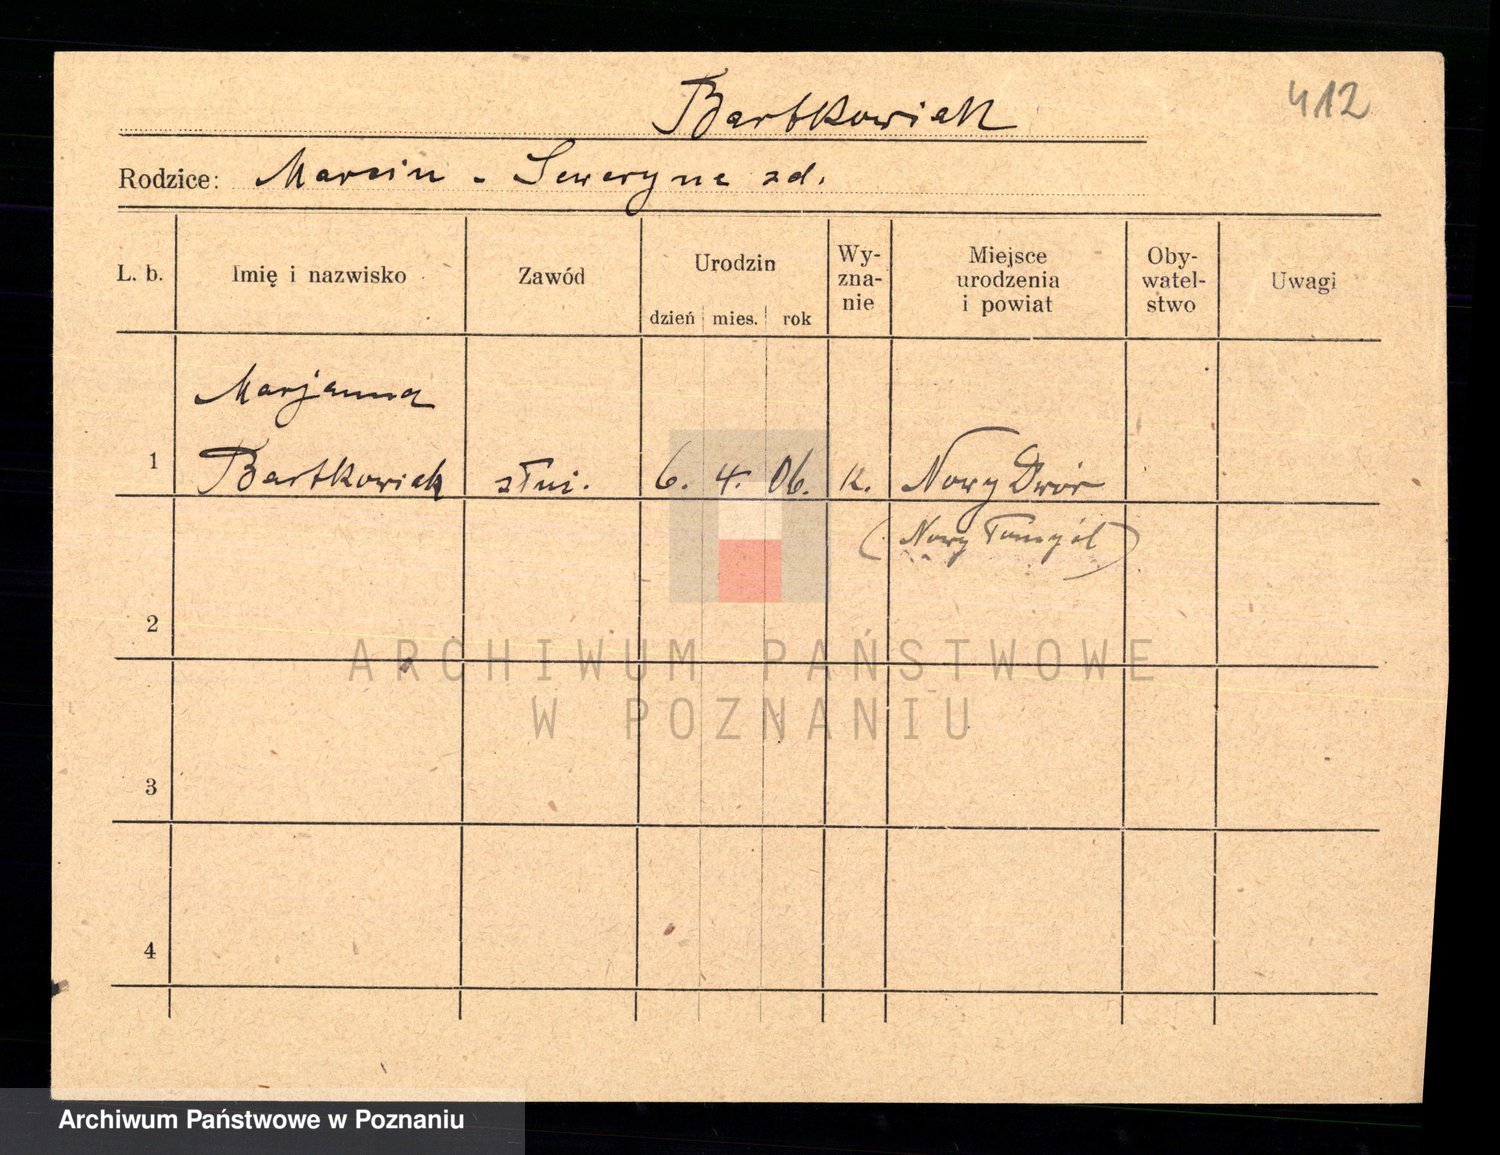 412
Bartkowiak
Rodzice: Marcin - Seweryna zd.
L. b. Imię i nazwisko Zawód Urodzin Wy-zna-nie Miejsce urodzenia i powiat Oby-watel-stwo Uwagi
dzień mies. rok
Marjanna
1 Bartkowiak służ. 6. 4. 06. k. Nowy Dwór
(Nowy Tomyśl)
2
ARCHIWUM PAŃSTWOWE
W POZNANIU
3
4
Archiwum Państwowe w Poznaniu